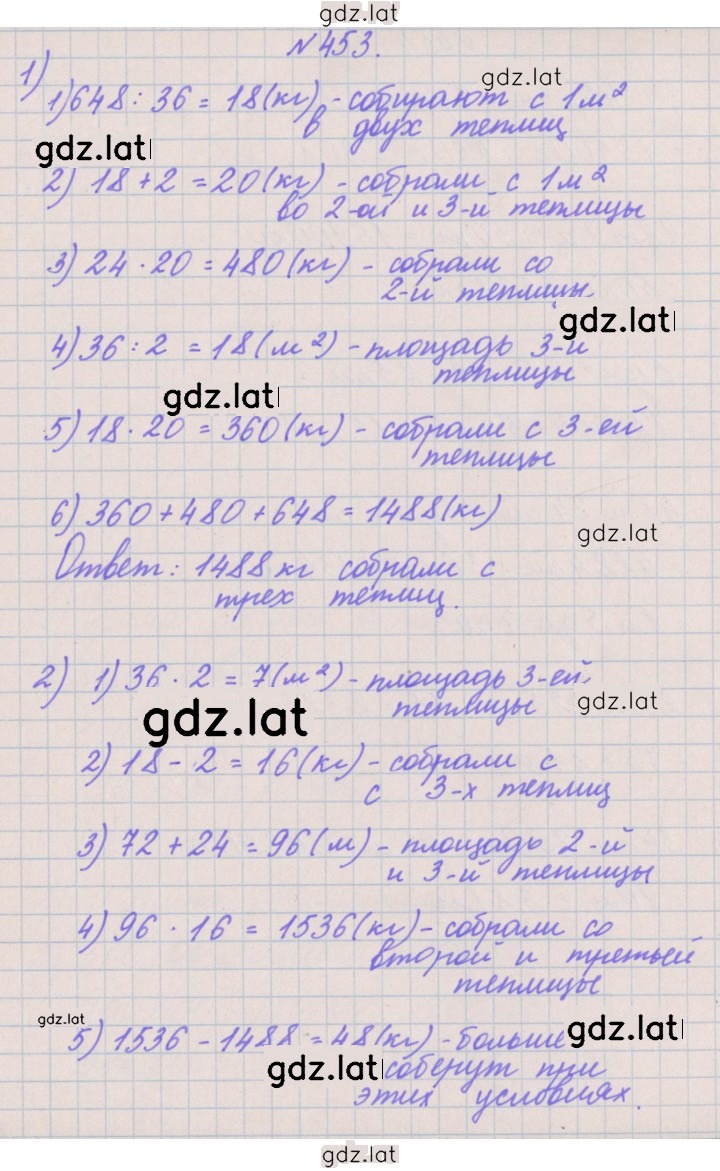 gdz.lat
№453.
1)
1) 648 : 36 = 18 (кг) - собирают с 1 м²
gdz.lat
в двух теплиц
gdz.lat
2) 18 + 2 = 20 (кг) - собрали с 1 м²
во 2-ой и 3-й теплицы
3) 24 · 20 = 480 (кг) - собрали со
2-й теплицы.
gdz.lat
4) 36 : 2 = 18 (м²) - площадь 3-й
теплицы
gdz.lat
5) 18 · 20 = 360 (кг) - собрали с 3-ей
теплицы
6) 360 + 480 + 648 = 1488 (кг)
gdz.lat
Ответ: 1488 кг собрали с
трех теплиц.
2) 1) 36 · 2 = 7 (м²) - площадь 3-ей
теплицы
gdz.lat
gdz.lat
2) 18 - 2 = 16 (кг) - собрали с
с 3-х теплиц
3) 72 + 24 = 96 (м) - площадь 2-й
и 3-й теплицы
4) 96 · 16 = 1536 (кг) - собрали со
второй и третьей
теплицы
gdz.lat
5) 1536 - 1488 = 48 (кг) - больше
gdz.lat
gdz.lat
соберут при
этих условиях.
gdz.lat